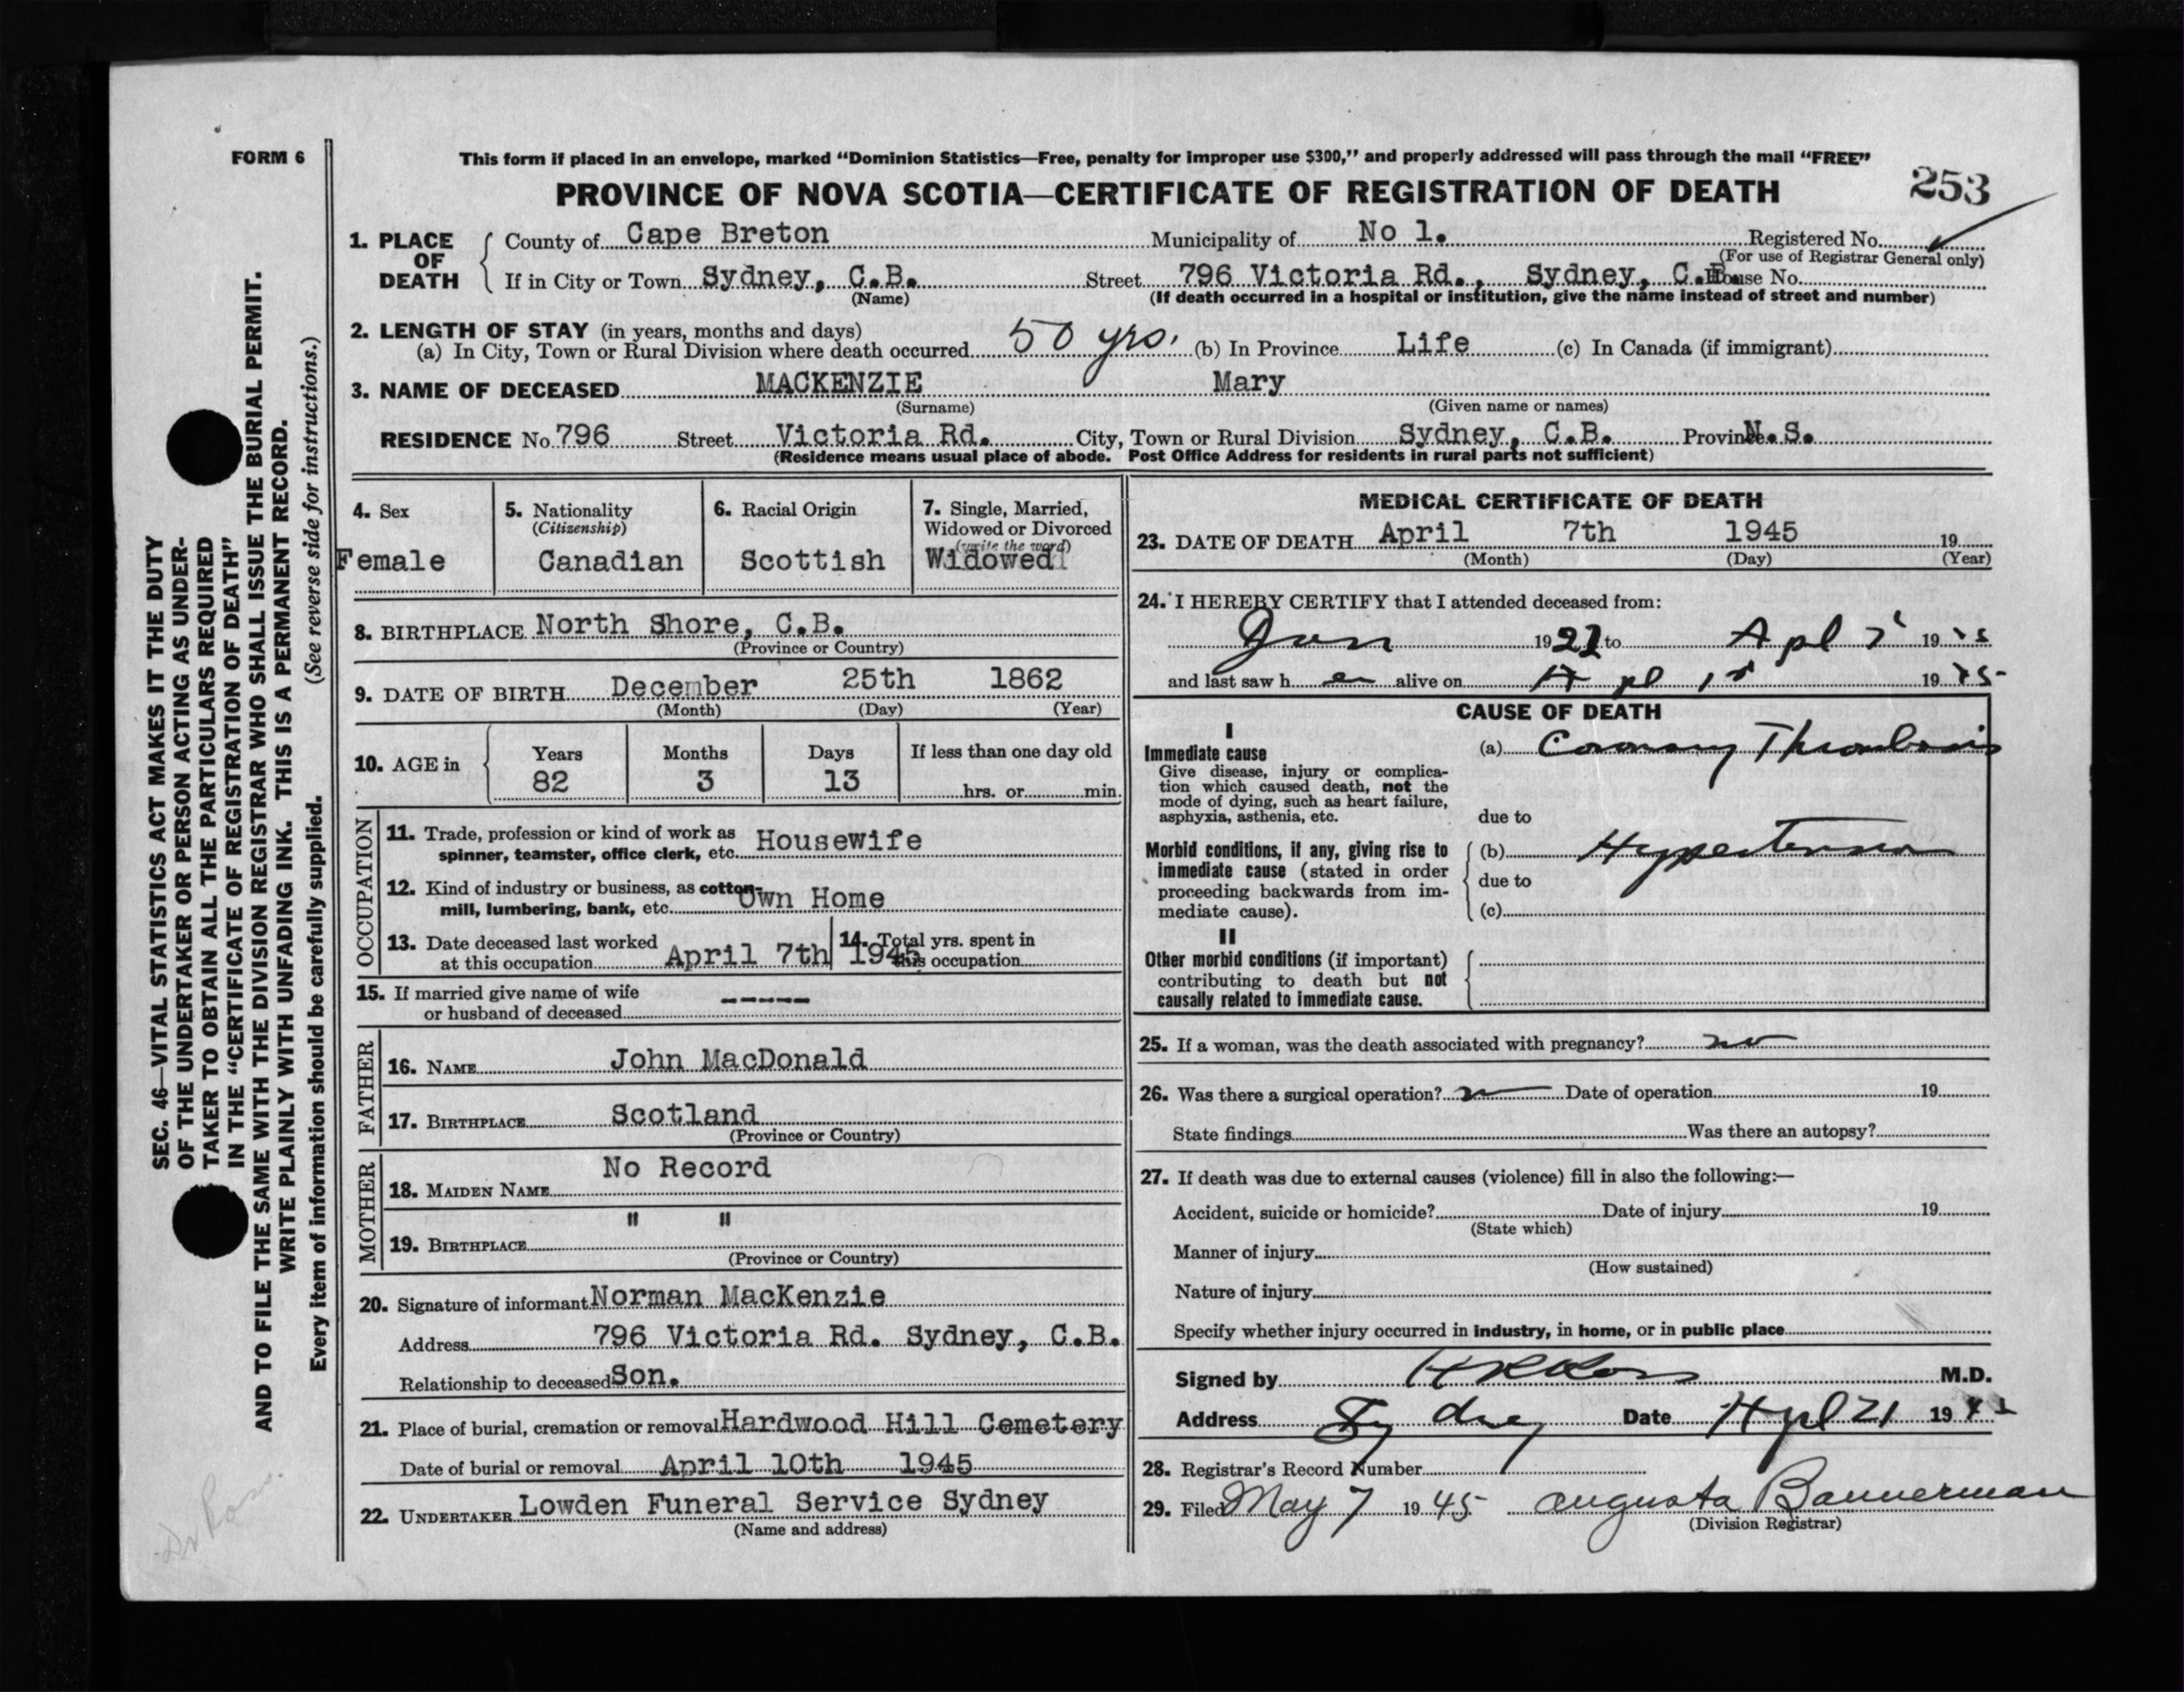 FORM 6
This form if placed in an envelope, marked "Dominion Statistics—Free, penalty for improper use $300," and properly addressed will pass through the mail "FREE"
253
PROVINCE OF NOVA SCOTIA—CERTIFICATE OF REGISTRATION OF DEATH
1. PLACE OF DEATH
County of Cape Breton Municipality of No 1. Registered No.
(For use of Registrar General only)
If in City or Town Sydney, C.B. Street 796 Victoria Rd., Sydney, C.B. House No.
(Name) (If death occurred in a hospital or institution, give the name instead of street and number)
2. LENGTH OF STAY (in years, months and days)
(a) In City, Town or Rural Division where death occurred 50 yrs. (b) In Province Life (c) In Canada (if immigrant)
3. NAME OF DECEASED MACKENZIE Mary
(Surname) (Given name or names)
RESIDENCE No. 796 Street Victoria Rd. City, Town or Rural Division Sydney, C.B. Province N.S.
(Residence means usual place of abode. Post Office Address for residents in rural parts not sufficient)
4. Sex
Female
5. Nationality
(Citizenship)
Canadian
6. Racial Origin
Scottish
7. Single, Married,
Widowed or Divorced
(write the word)
Widowed
8. BIRTHPLACE North Shore, C.B.
(Province or Country)
9. DATE OF BIRTH December 25th 1862
(Month) (Day) (Year)
10. AGE in Years Months Days If less than one day old
82 3 13 hrs. or min.
OCCUPATION
11. Trade, profession or kind of work as
spinner, teamster, office clerk, etc. Housewife
12. Kind of industry or business, as cotton-
mill, lumbering, bank, etc. Own Home
13. Date deceased last worked
at this occupation April 7th 1945
14. Total yrs. spent in
this occupation
15. If married give name of wife
or husband of deceased -----
FATHER
16. NAME John MacDonald
17. BIRTHPLACE Scotland
(Province or Country)
MOTHER
18. MAIDEN NAME No Record
19. BIRTHPLACE " "
(Province or Country)
20. Signature of informant Norman MacKenzie
Address 796 Victoria Rd. Sydney, C.B.
Relationship to deceased Son.
21. Place of burial, cremation or removal Hardwood Hill Cemetery
Date of burial or removal April 10th 1945
22. UNDERTAKER Lowden Funeral Service Sydney
(Name and address)
MEDICAL CERTIFICATE OF DEATH
23. DATE OF DEATH April 7th 1945 19
(Month) (Day) (Year)
24. I HEREBY CERTIFY that I attended deceased from:
Jan 19 to Apl 7 19
and last saw her alive on Apl 19
CAUSE OF DEATH
I
Immediate cause
Give disease, injury or complica-
tion which caused death, not the
mode of dying, such as heart failure,
asphyxia, asthenia, etc.
(a) Coronary Thrombosis
due to
Morbid conditions, if any, giving rise to
immediate cause (stated in order
proceeding backwards from im-
mediate cause).
(b) Hypertension
due to
(c)
II
Other morbid conditions (if important)
contributing to death but not
causally related to immediate cause.
25. If a woman, was the death associated with pregnancy? no
26. Was there a surgical operation? no Date of operation 19
State findings Was there an autopsy?
27. If death was due to external causes (violence) fill in also the following:—
Accident, suicide or homicide? Date of injury 19
(State which)
Manner of injury
(How sustained)
Nature of injury
Specify whether injury occurred in industry, in home, or in public place
Signed by M.D.
Address Sydney Date Apl 21 19
28. Registrar's Record Number
29. Filed May 7 1945 Augusta Bannerman
(Division Registrar)
SEC. 46—VITAL STATISTICS ACT MAKES IT THE DUTY
OF THE UNDERTAKER OR PERSON ACTING AS UNDER-
TAKER TO OBTAIN ALL THE PARTICULARS REQUIRED
IN THE "CERTIFICATE OF REGISTRATION OF DEATH"
AND TO FILE THE SAME WITH THE DIVISION REGISTRAR WHO SHALL ISSUE THE BURIAL PERMIT.
WRITE PLAINLY WITH UNFADING INK. THIS IS A PERMANENT RECORD.
Every item of information should be carefully supplied. (See reverse side for instructions.)
Dr Ross.